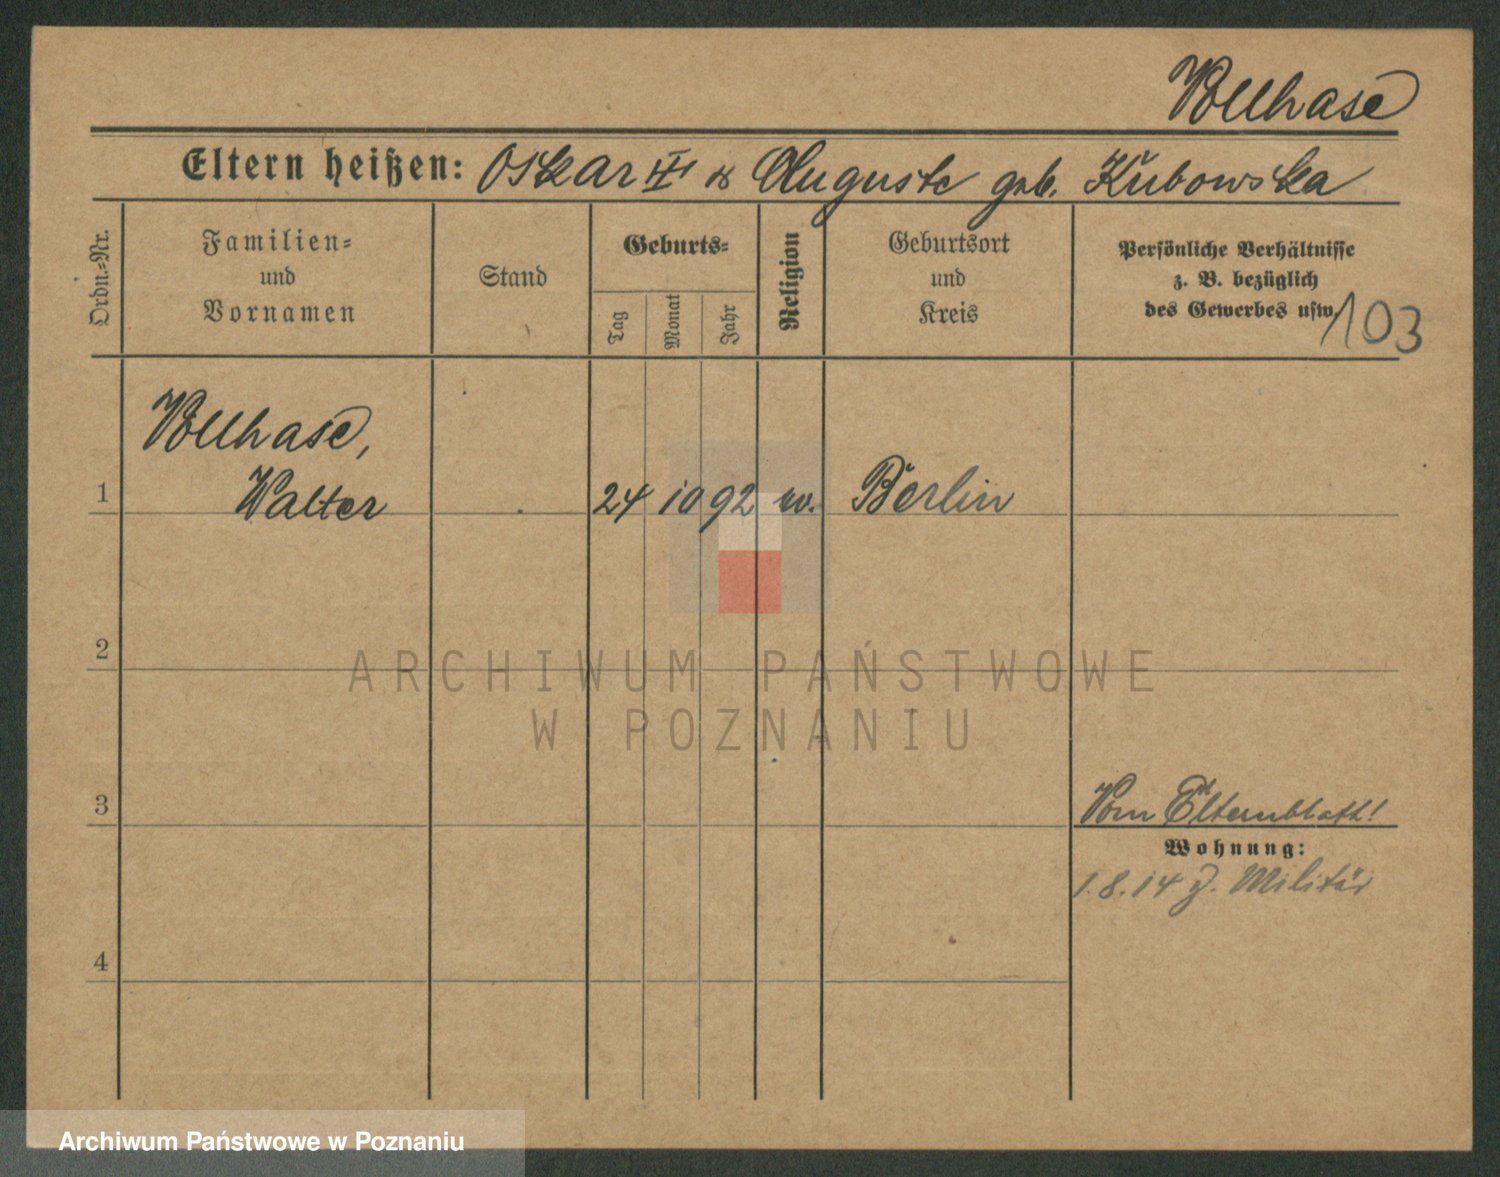 Vollhase
Eltern heißen: Oskar III & Auguste geb. Kubowska
Ordn.-Nr.
Familien-
und
Vornamen
Stand
Geburts-
Tag
Monat
Jahr
Religion
Geburtsort
und
Kreis
Persönliche Verhältnisse
z. B. bezüglich
des Gewerbes usw.
103
Vollhase,
1 Walter 24 10 92 ev. Berlin
2
ARCHIWUM PAŃSTWOWE
W POZNANIU
3
Vom Elternblatt!
Wohnung:
1.8.14 z. Militär
4
Archiwum Państwowe w Poznaniu